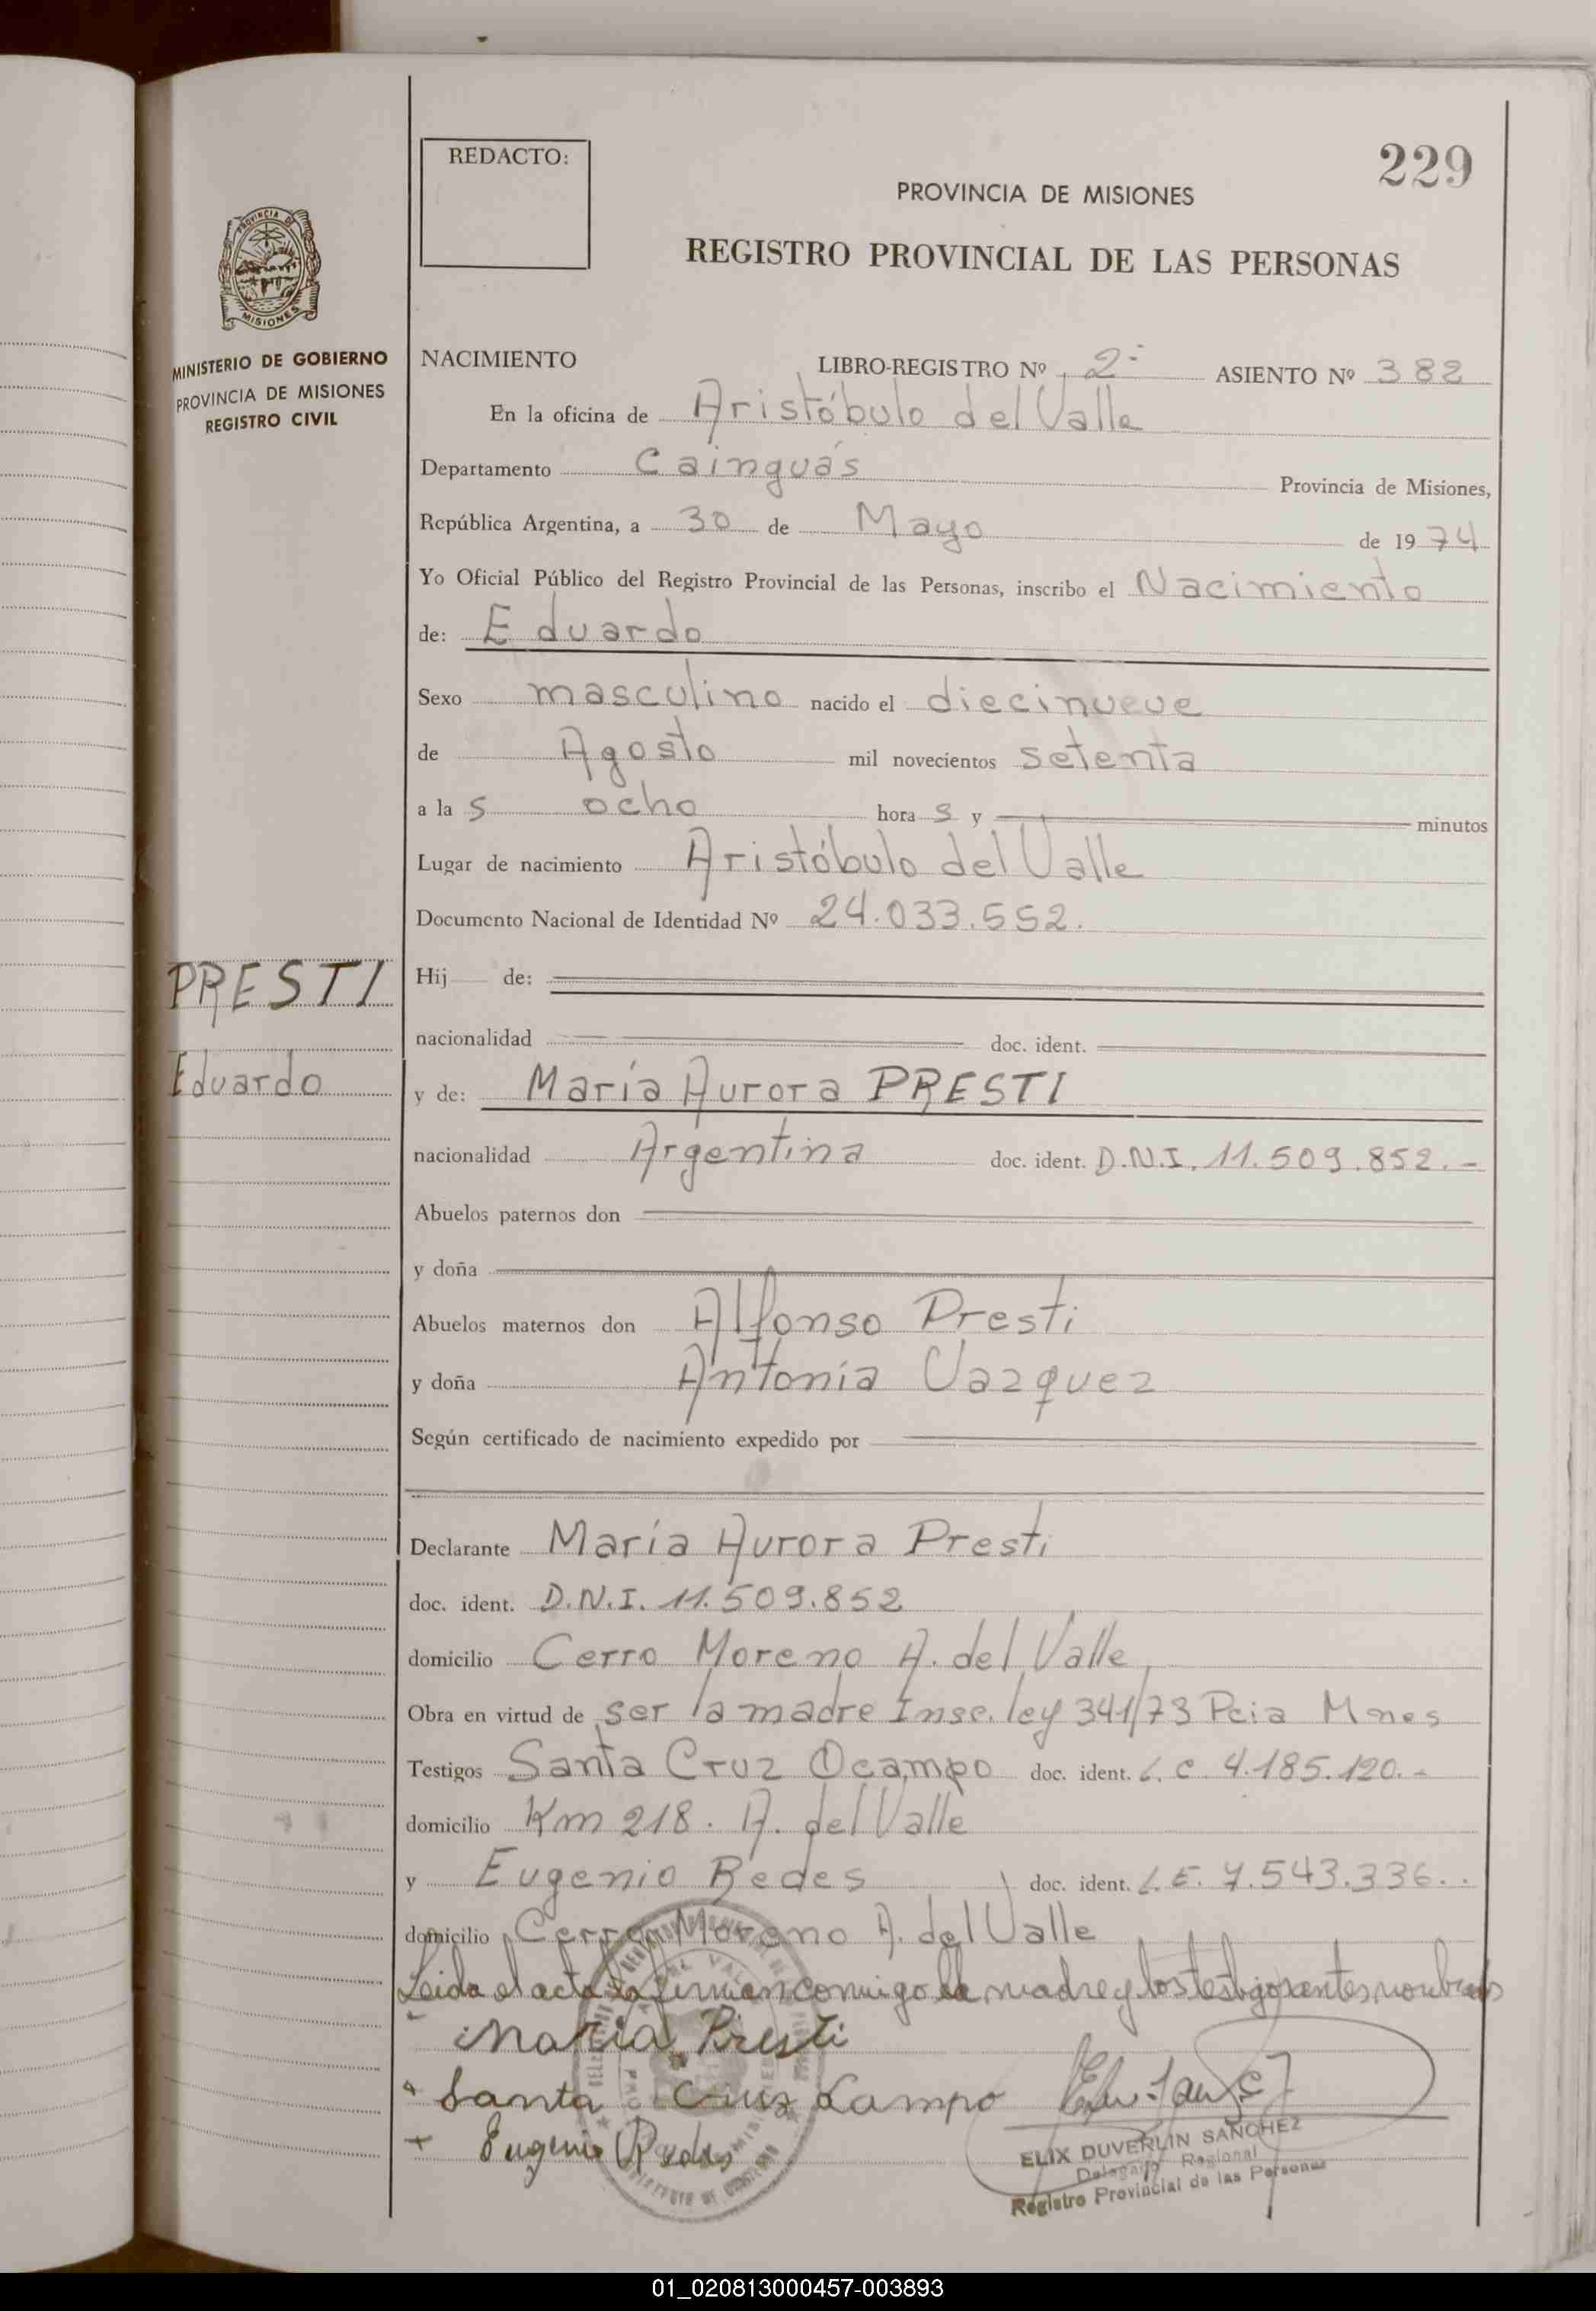 REDACTO:
229
PROVINCIA DE MISIONES
REGISTRO PROVINCIAL DE LAS PERSONAS
PROVINCIA D
MISIONES
MINISTERIO DE GOBIERNO
PROVINCIA DE MISIONES
REGISTRO CIVIL
NACIMIENTO LIBRO-REGISTRO Nº 2- ASIENTO Nº 382
En la oficina de Aristóbulo del Valle
Departamento Cainguás Provincia de Misiones,
República Argentina, a 30 de Mayo de 1974
Yo Oficial Público del Registro Provincial de las Personas, inscribo el Nacimiento
de: Eduardo
Sexo masculino nacido el diecinueve
de Agosto mil novecientos setenta
a la s ocho hora s y minutos
Lugar de nacimiento Aristóbulo del Valle
Documento Nacional de Identidad Nº 24.033.552.
PRESTI
Eduardo
Hij de:
nacionalidad doc. ident.
y de: María Aurora PRESTI
nacionalidad Argentina doc. ident. D.N.I. 11.509.852.-
Abuelos paternos don
y doña
Abuelos maternos don Alfonso Presti
y doña Antonia Vazquez
Según certificado de nacimiento expedido por
Declarante María Aurora Presti
doc. ident. D.N.I. 11.509.852
domicilio Cerro Moreno A. del Valle
Obra en virtud de ser la madre Insc. ley 341/73 Pcia Mnes
Testigos Santa Cruz Ocampo doc. ident. L.C. 4.185.120.-
domicilio Km 218. A. del Valle
y Eugenio Redes doc. ident. L.E. 7.543.336..
domicilio Cerro Moreno A. del Valle
Leida el acta la firman conmigo la madre y los testigos antes nombrados
Maria Presti
Santa Cruz Campo
Eugenio
ELIX DUVERLIN SANCHEZ
Delegado Regional
Registro Provincial de las Personas
01_020813000457-003893